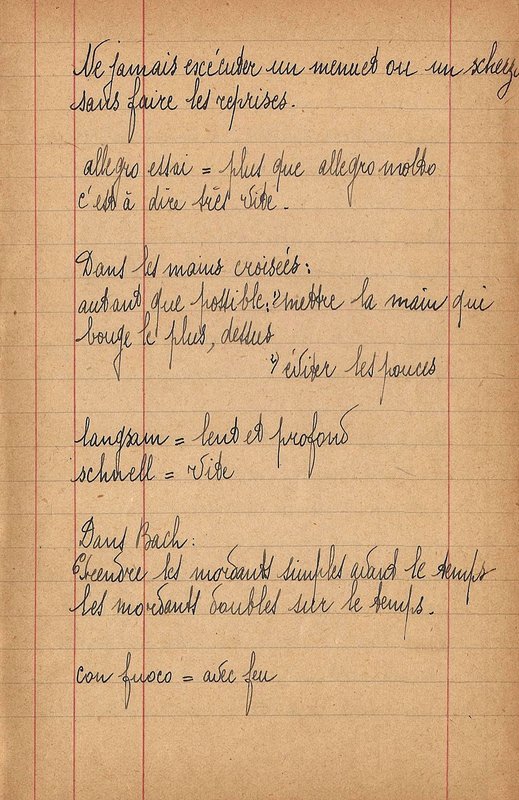 Ne jamais exécuter un menuet ou un scherzo
sans faire les reprises.
allegro essai = plus que allegro molto
c'est à dire très vite.
Dans les mains croisées:
autant que possible: 1) mettre la main qui
bouge le plus, dessus
2) éviter les pouces
langsam = lent et profond
schnell = vite
Dans Bach:
Prendre les mordants simples avant le temps
les mordants doubles sur le temps.
con fuoco = avec feu